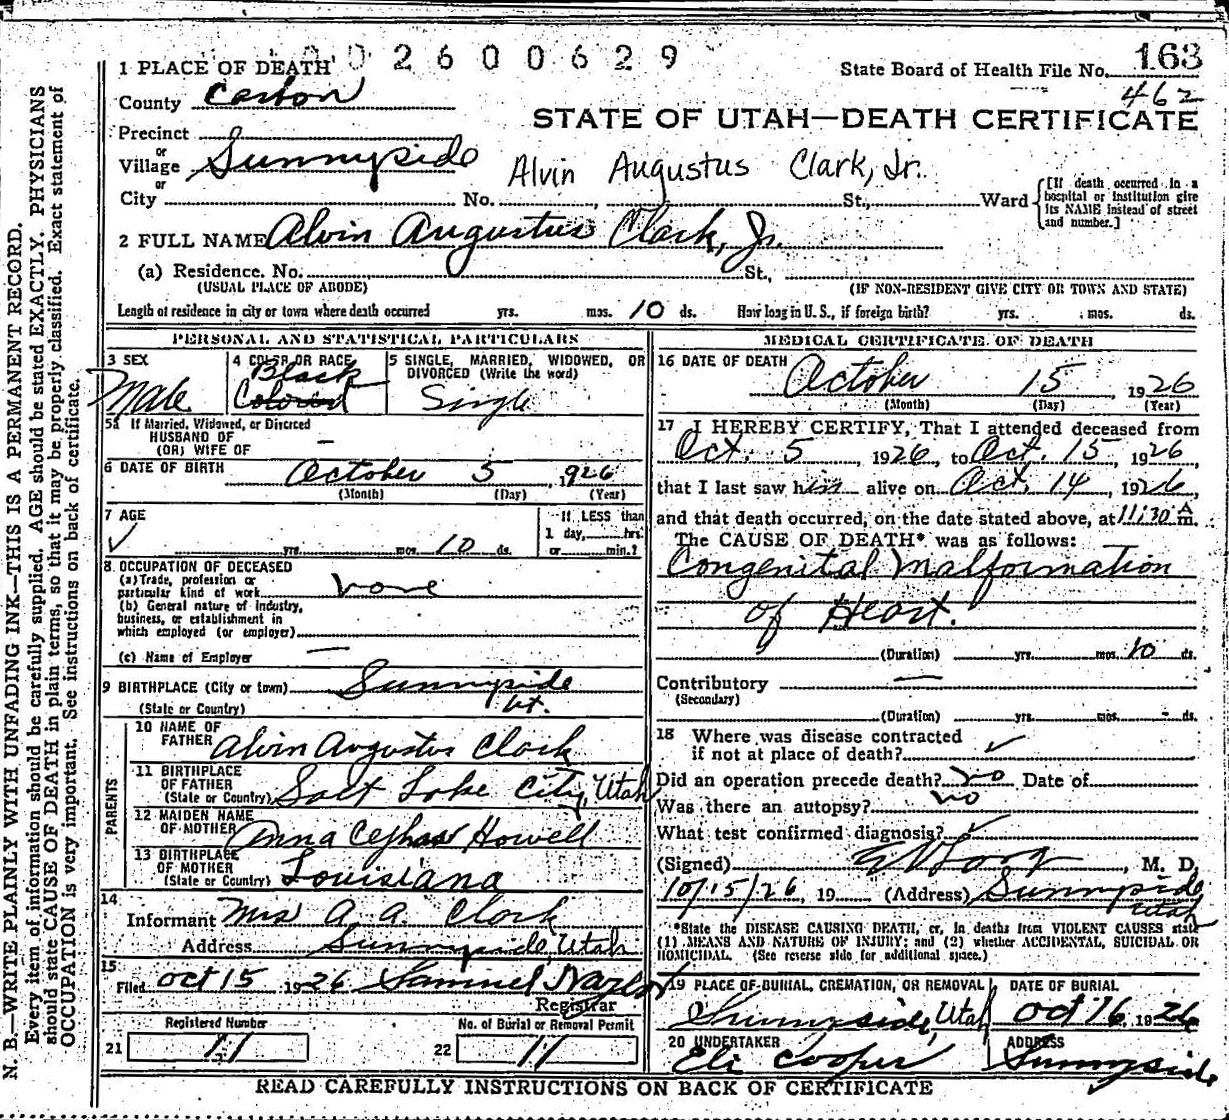 002600629
1 PLACE OF DEATH
State Board of Health File No. 163
County Carbon
462
STATE OF UTAH—DEATH CERTIFICATE
Precinct
or
Village Sunnyside
Alvin Augustus Clark, Jr.
or
City No. St., Ward
[If death occurred in a hospital or institution give its NAME instead of street and number.]
2 FULL NAME Alvin Augustus Clark, Jr.
(a) Residence. No. St.,
(USUAL PLACE OF ABODE) (IF NON-RESIDENT GIVE CITY OR TOWN AND STATE)
Length of residence in city or town where death occurred yrs. mos. 10 ds. How long in U. S., if foreign birth? yrs. mos. ds.
PERSONAL AND STATISTICAL PARTICULARS
3 SEX
Male
4 COLOR OR RACE
Black
Colored
5 SINGLE, MARRIED, WIDOWED, OR DIVORCED (Write the word)
Single
5a If Married, Widowed, or Divorced
HUSBAND OF
(OR) WIFE OF –
6 DATE OF BIRTH October 5 1926
(Month) (Day) (Year)
7 AGE
yrs. mos. 10 ds.
If LESS than
1 day, hrs.
or min.?
8. OCCUPATION OF DECEASED
(a) Trade, profession or
particular kind of work none
(b) General nature of industry,
business, or establishment in
which employed (or employer)
(c) Name of Employer —
9 BIRTHPLACE (City or town) Sunnyside
(State or Country) Ut.
PARENTS
10 NAME OF
FATHER Alvin Augustus Clark
11 BIRTHPLACE
OF FATHER
(State or Country) Salt Lake City, Utah
12 MAIDEN NAME
OF MOTHER Anna Howell
13 BIRTHPLACE
OF MOTHER
(State or Country) Louisiana
14
Informant Mrs A. A. Clark
Address Sunnyside, Utah
15
Filed Oct 15 1926 Samuel
Registrar
Registered Number
21 11
No. of Burial or Removal Permit
22 11
MEDICAL CERTIFICATE OF DEATH
16 DATE OF DEATH October 15 1926
(Month) (Day) (Year)
17 I HEREBY CERTIFY, That I attended deceased from
Oct. 5, 1926, to Oct. 15, 1926
that I last saw him alive on Oct. 14, 1926,
and that death occurred, on the date stated above, at 11:30 A m.
The CAUSE OF DEATH* was as follows:
Congenital Malformation
of Heart.
(Duration) yrs. mos. 10 ds.
Contributory —
(Secondary)
(Duration) yrs. mos. - ds.
18 Where was disease contracted
if not at place of death?
Did an operation precede death? no Date of
Was there an autopsy? no
What test confirmed diagnosis?
(Signed) M. D.
10/15/26, 19 (Address) Sunnyside
Utah
*State the DISEASE CAUSING DEATH, or, in deaths from VIOLENT CAUSES state
(1) MEANS AND NATURE OF INJURY; and (2) whether ACCIDENTAL, SUICIDAL OR
HOMICIDAL. (See reverse side for additional space.)
19 PLACE OF BURIAL, CREMATION, OR REMOVAL
Sunnyside, Utah
DATE OF BURIAL
Oct 16, 1926
20 UNDERTAKER
Eli Cooper
ADDRESS
Sunnyside
READ CAREFULLY INSTRUCTIONS ON BACK OF CERTIFICATE
N. B.—WRITE PLAINLY WITH UNFADING INK—THIS IS A PERMANENT RECORD.
Every item of information should be carefully supplied. AGE should be stated EXACTLY. PHYSICIANS
should state CAUSE OF DEATH in plain terms, so that it may be properly classified. Exact statement of
OCCUPATION is very important. See instructions on back of certificate.